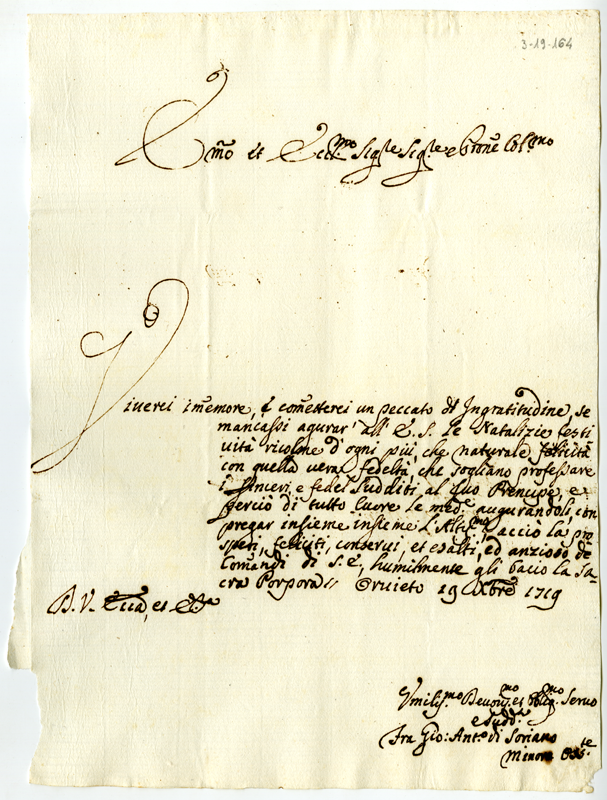 3-19-164
Em̃o et Ecc.mo Sig.re Sig.re e Prone Col.mo
Viverei im̃emore, e com̃etterei un peccato di Ingratitudine, se
mancassi agurar' all' E. S. le Natalizie festi
vità ricolme d'ogni più, che naturale felicità
con quella vera fedeltà che sogliano professare
i sinceri, e fedel Sudditi al suo Prencipe, e
perciò di tutto cuore le med.e augurandoli, con
pregar insieme insieme l'Altis.mo acciò la pro
speri, feliciti, conservi, et esalti, ed anzioso de
Comandi di S. E., humilmente gli bacio la Sa=
cra Porpora // Orvieto 19 Xbre 1719
D. V. Ecc̃a, et
Vmilis.mo Devotis.mo et Oblig.mo Servo
e Sudd.o
Fra Gio: Ant.o di Soriano
Minore Oss.te